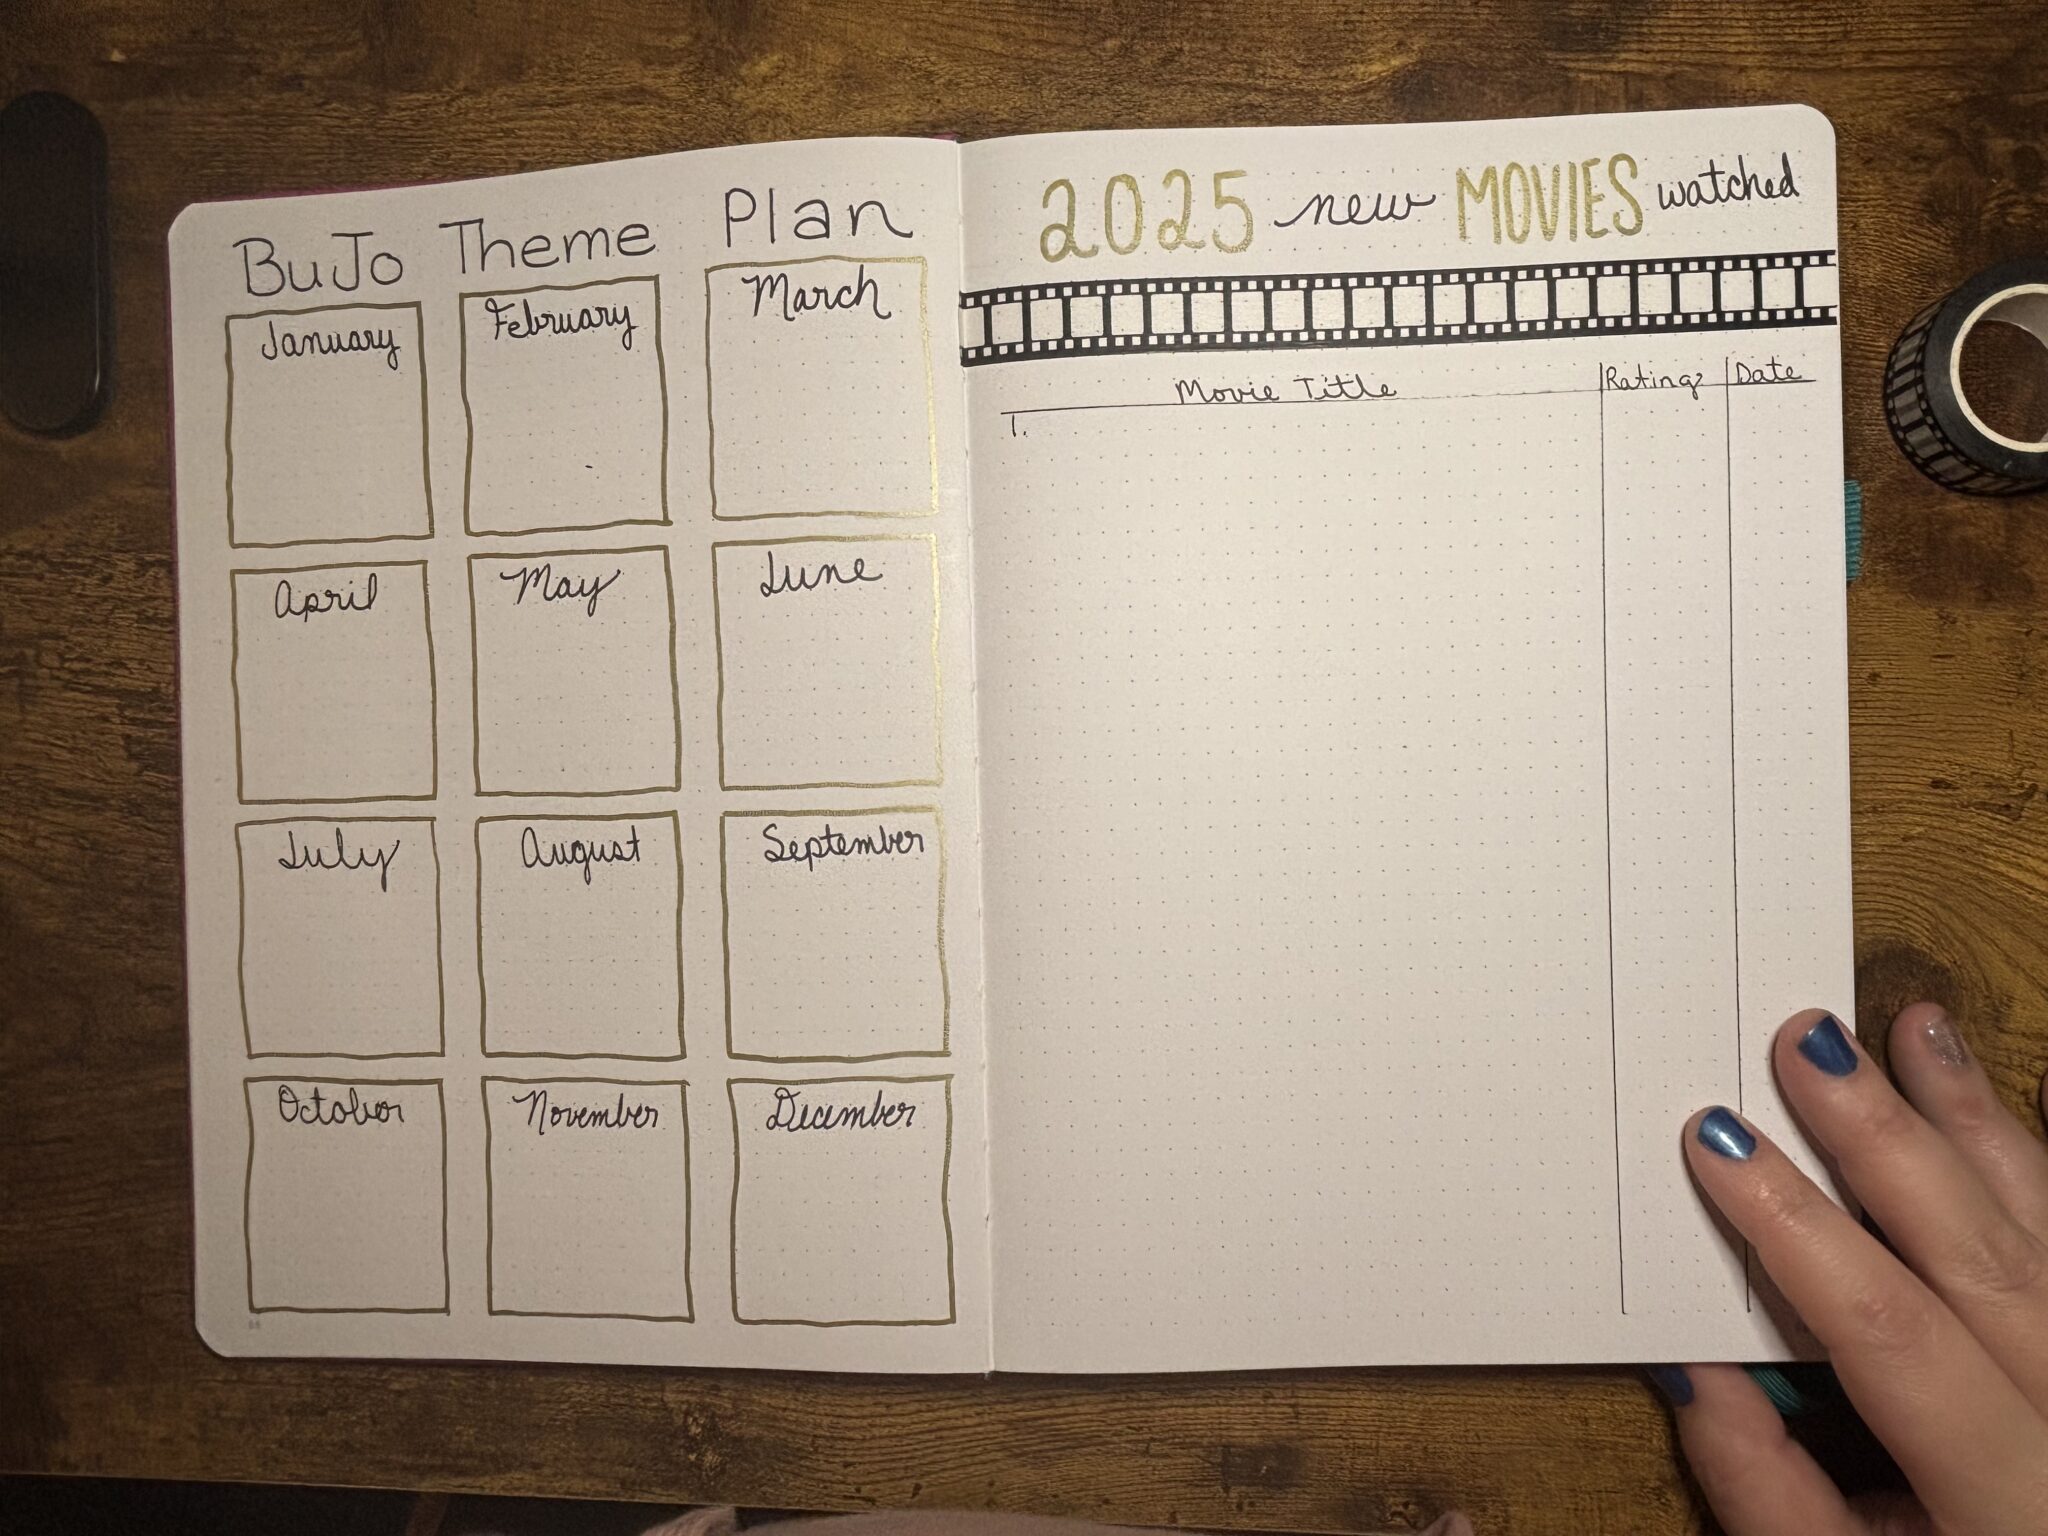 BuJo Theme Plan
January February March
April May June
July August September
October November December
2025 new MOVIES watched
Movie Title Rating Date
1.